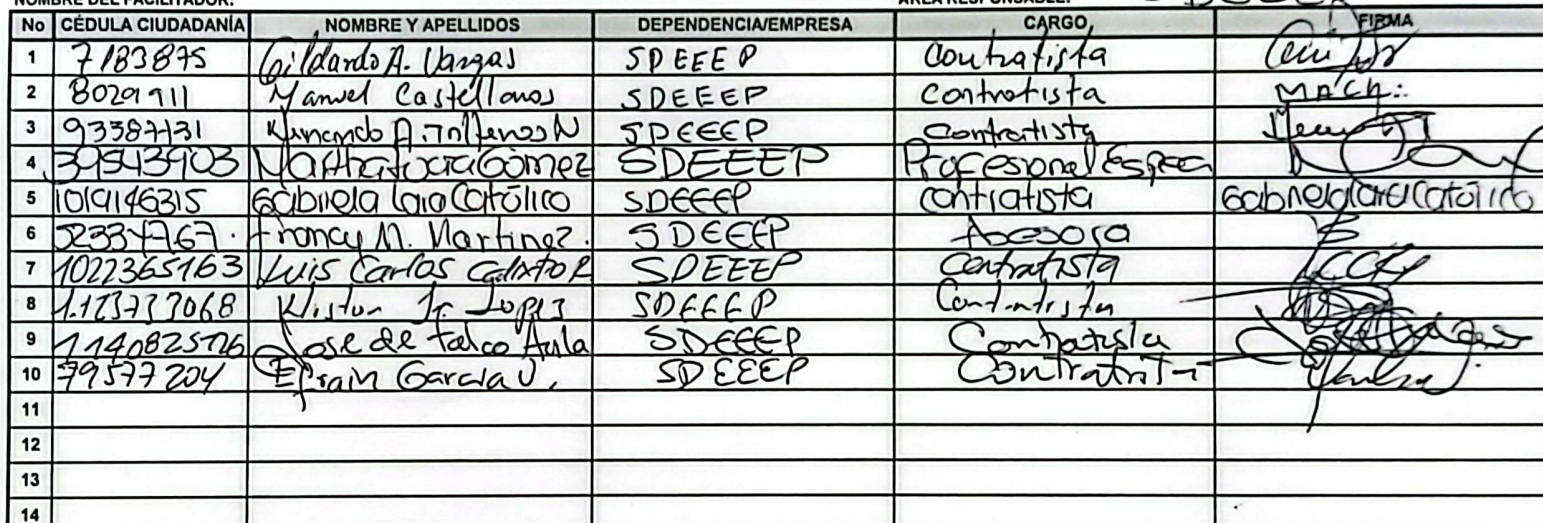 NOMBRE DEL FACILITADOR: ÁREA RESPONSABLE:
No CÉDULA CIUDADANÍA NOMBRE Y APELLIDOS DEPENDENCIA/EMPRESA CARGO FIRMA
1 7183875 Gildardo A. Vargas SDEEEP Contratista
2 8029911 Manuel Castellanos SDEEEP Contratista MACH:
3 93387131 SDEEEP Contratista
4 39543903 Gómez SDEEEP Profesional Espec
5 1019146315 Gabriela Católico SDEEEP contratista Gabriela Católico
6 52334767. Francy M. Martinez. SDEEEP Asesora
7 1022365163 Luis Carlos Calixto R SDEEEP Contratista
8 Lopez SDEEEP Contratista
9 Jose de SDEEEP Contratista
10 79577204 Efrain Garcia V. SDEEEP Contratista
11
12
13
14